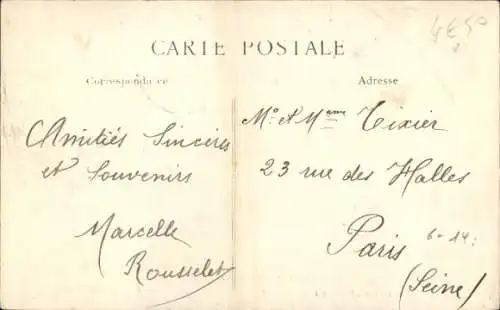 4€50
CARTE POSTALE
Correspondance
Adresse
Amitiés Sincères
et Souvenirs
Marcelle
Rousselet
Mr et Mme Tixier
23 rue des Halles
Paris 6-14
(Seine)